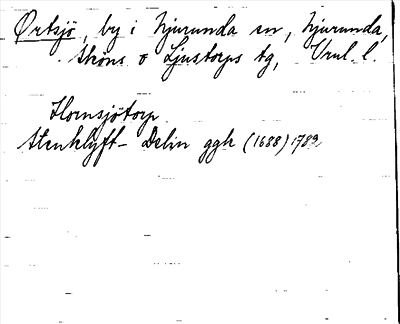 Ortsjö, by i Njurunda sn, Njurunda,
Sköns o Ljustorps tg, Vnl. l.
Hornsjötorp
Stenklyft - Delin ggk (1688) 1789